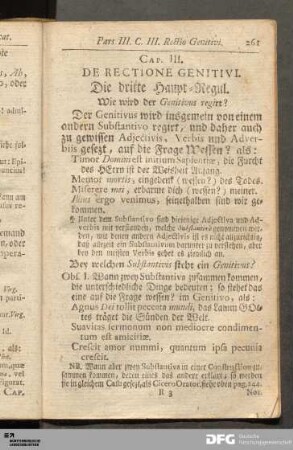 Pars III. C. III. Rectio Genitivi. 261
CAP. III.
DE RECTIONE GENITIVI.
Die dritte Haupt-Regul.
Wie wird der Genitivus regirt?
Der Genitivus wird insgemein von einem
andern Substantivo regirt, und daher auch
zu gewissen Adjectivis, Verbis und Adver-
biis gesetzt, auf die Frage Wessen? als:
Timor Domini est initium Sapientiæ, die Furcht
des HErrn ist der Weißheit Anfang.
Memor mortis, eingedenk (wessen?) des Todes.
Miserere mei, erbarme dich (wessen?) meiner.
Illius ergo venimus, seinethalben sind wir ge-
kommen.
Unter dem Substantivo sind diejenige Adjectiva und Ad-
verbia mit verstanden, welche Substantivè genommen wer-
den,
Bey welchen Substantivis steht ein Genitivus?
Obs. I. Wann zwey Substantiva zusammen kommen,
die unterschiedliche Dinge bedeuten: so stehet das
eine auf die Frage wessen? im Genitivo, als:
Agnus Dei tollit peccata mundi, das Lamm GOt-
tes trägt die Sünden der Welt.
Suavitas sermonum non mediocre condimen-
tum est amicitiæ.
Crescit amor nummi, quantum ipsa pecunia
crescit.
NB. Wann aber zwey Substantiva in einer Construction zu-
sammen kommen, deren eines das andere erklärt, so werden
sie in gleichem Casu gesezt, als Cicero Orator. siehe oben pag. 244.
R 3 Not.
CAP.